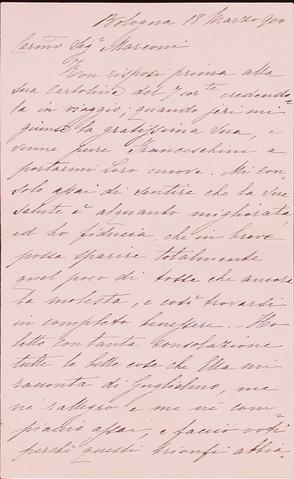 Bologna 18 Marzo 900
Carmã Sigª Marconi
Non risposi prima alla
sua cartolina del 7 corte credendo
la in viaggio, quando jeri mi
giunse la gratissima sua, e
venne pure Franceschini a
portarmi Loro nuove. Mi con
solò assai di sentire che la sua
salute è alquanto migliorata,
ed ho fiducia, che in breve
possa sparire totalmente
quel poco di tosse che ancora
la molesta, e così trovarsi
in completo benessere. Ho
letto con tanta consolazione
tutte le belle cose che Ella mi
racconta di Guglielmo, me
ne rallegro e me ne com
piaccio assai, e faccio voti
perchè questi trionfi abbia